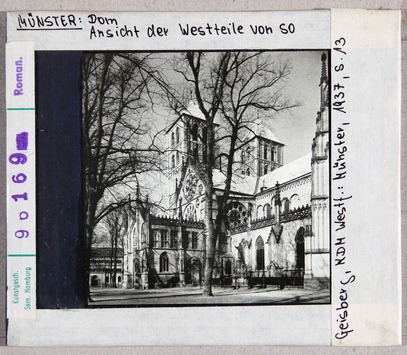 MÜNSTER: Dom
Ansicht der Westteile von SO
Roman.
90 169
Kunstgesch.
Sem. Hamburg
Geisberg, KDM Westf.: Münster, 1937, S. 13